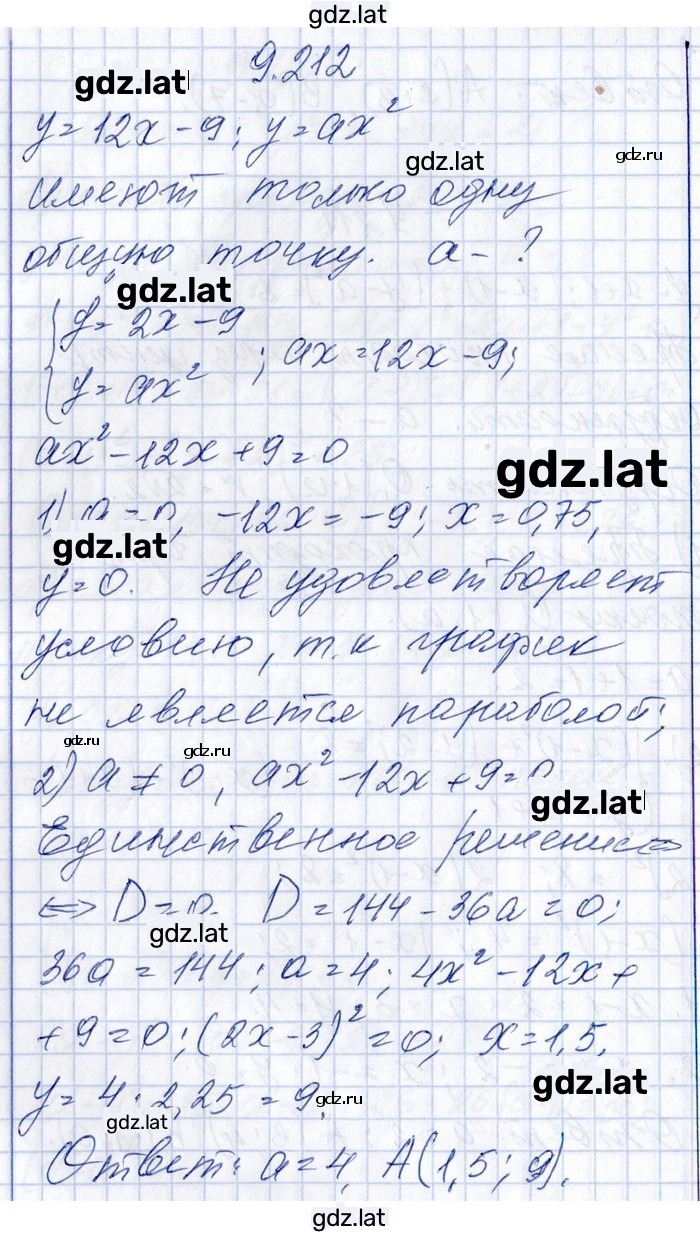 gdz.lat
9.212
gdz.lat
y=12x-9; y=ax²
gdz.lat
gdz.ru
имеют только одну
общую точку. a-?
gdz.lat
{ y=2x-9
y=ax² ; ax=12x-9;
ax²-12x+9=0
gdz.lat
1) a=0, -12x=-9; x=0,75,
gdz.lat
y=0. Не удовлетворяет
условию, т.к график
не является параболой;
gdz.ru
gdz.ru
2) a≠0, ax²-12x+9=0
gdz.lat
Единственное решение⇔
⇔ D=0. D=144-36a=0;
gdz.lat
36a=144; a=4; 4x²-12x+
+9=0; (2x-3)²=0; x=1,5,
gdz.lat
y=4·2,25=9.
gdz.ru
gdz.lat
Ответ: a=4, A(1,5; 9).
gdz.lat